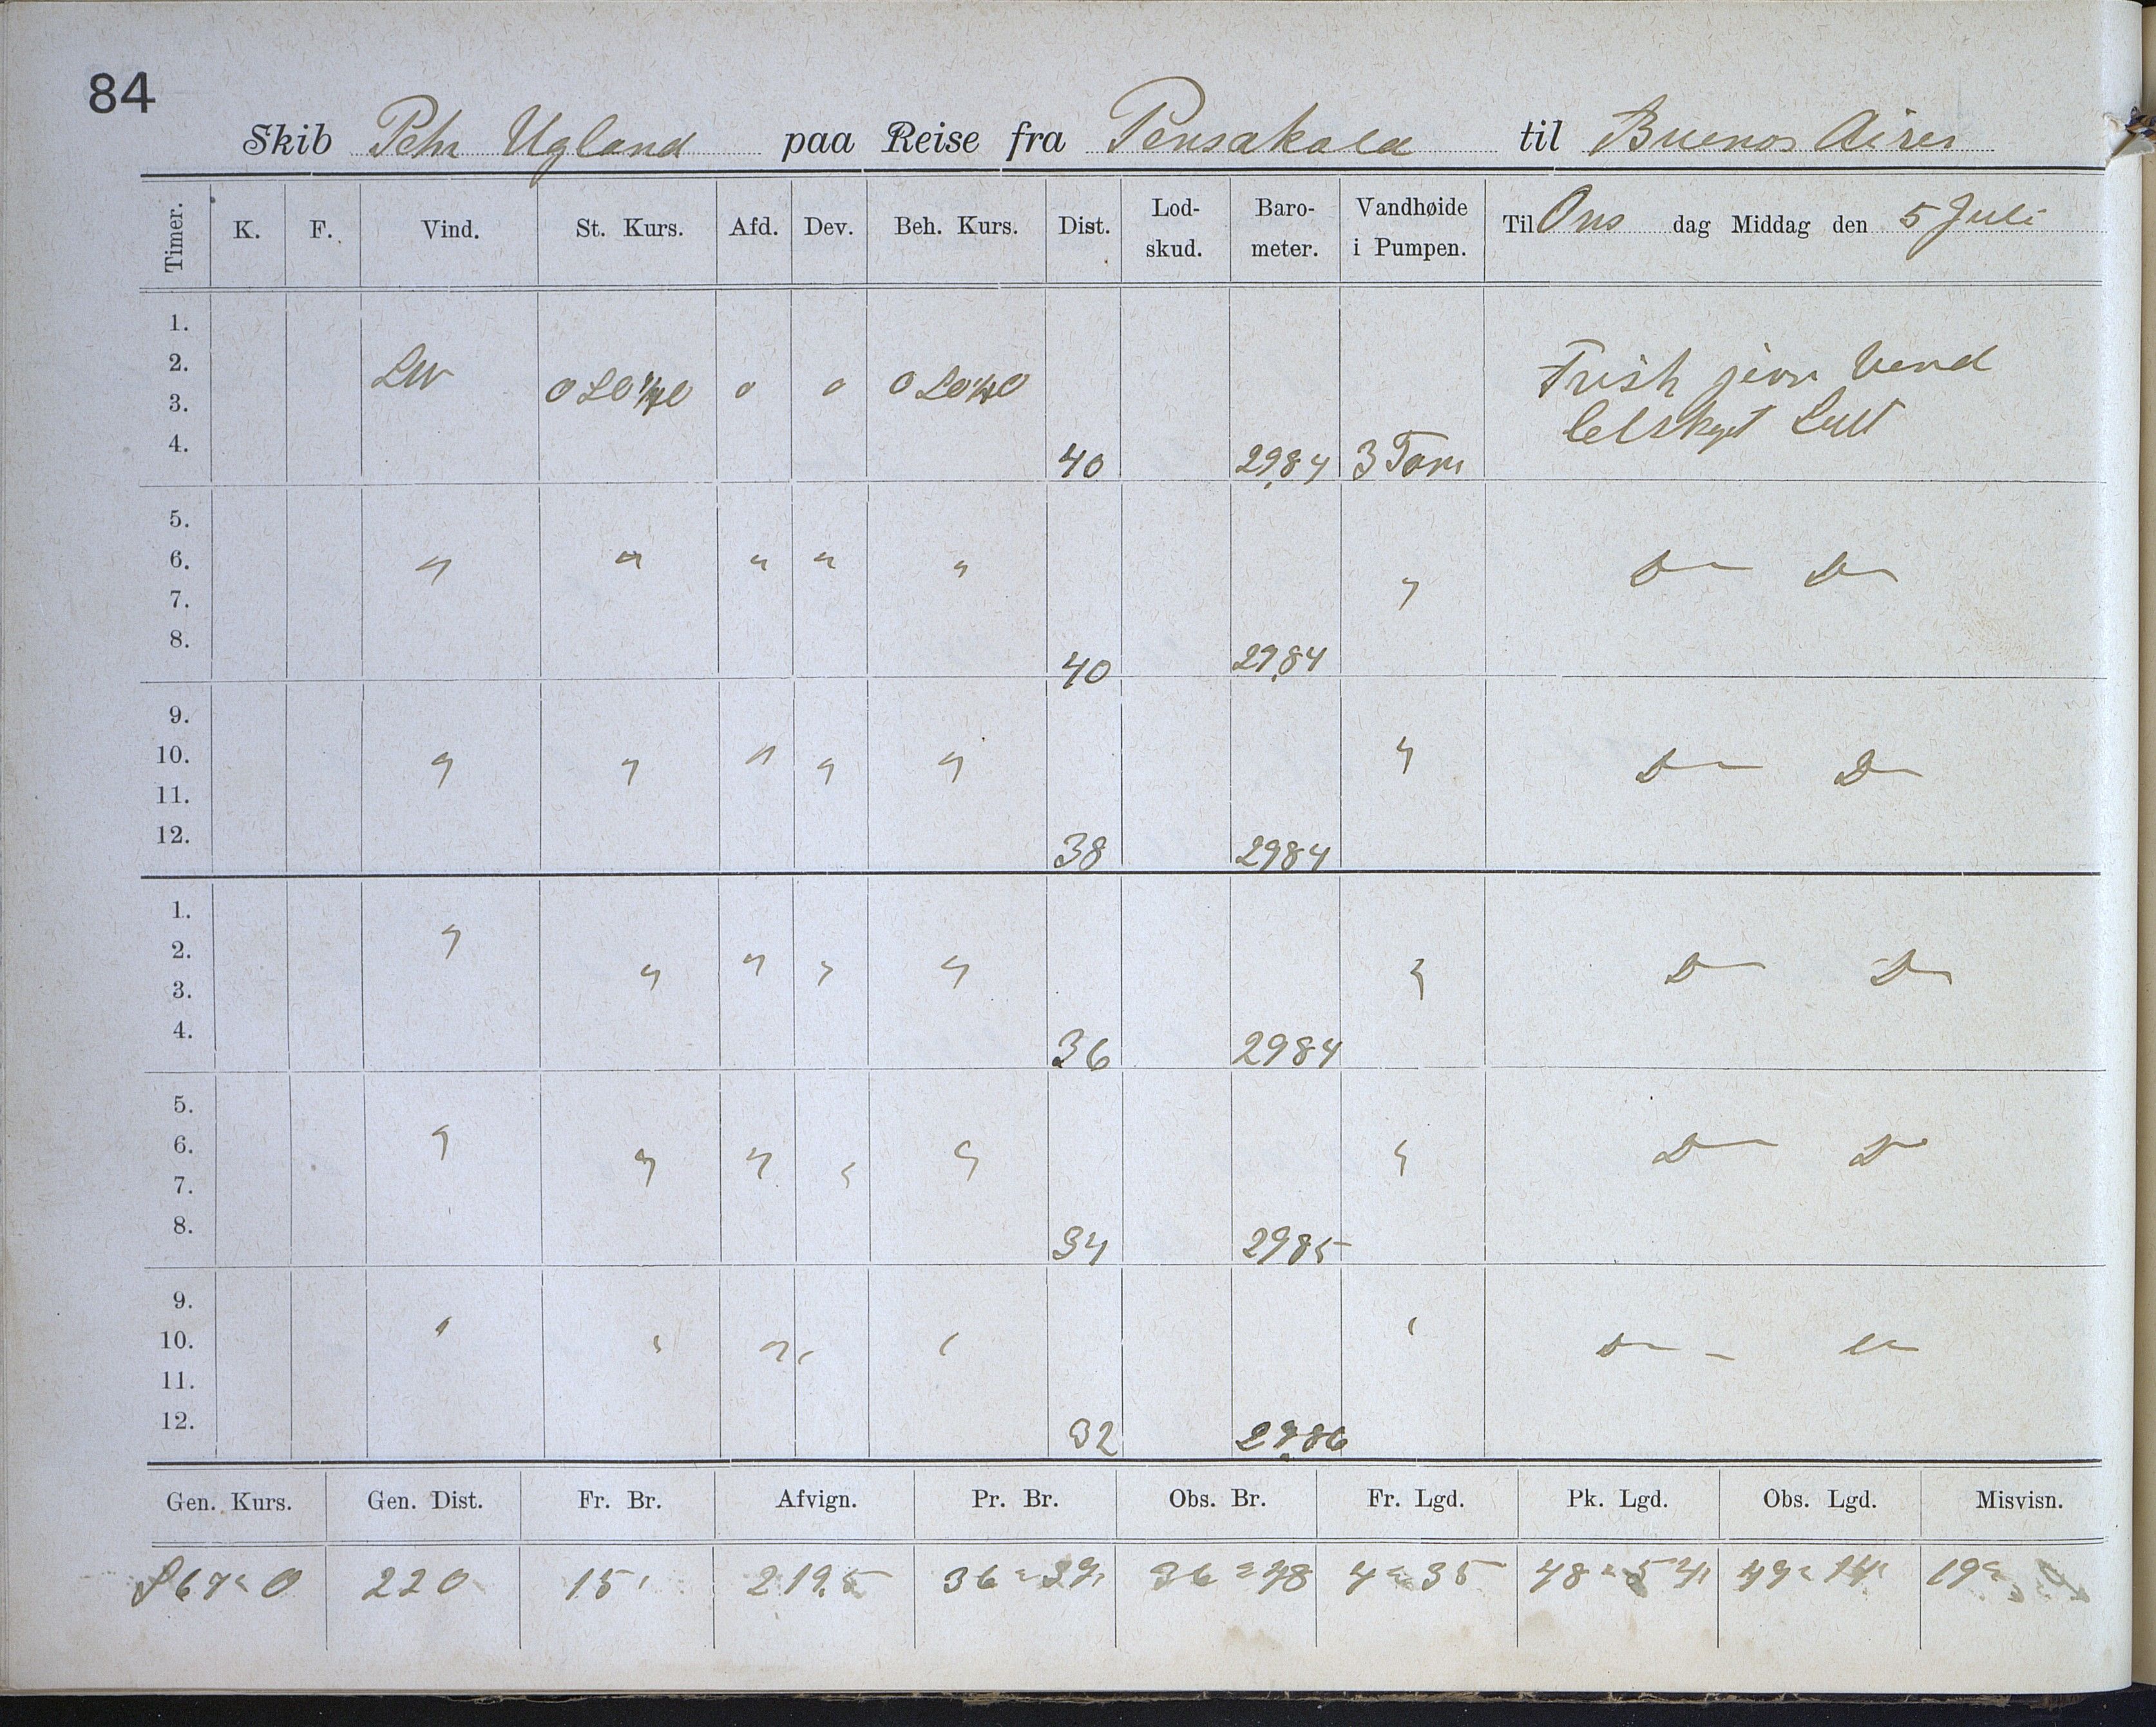 84
Skib Pehr Ugland paa Reise fra Pensakola til Buenos Aires
Timer. K. F. Vind. St. Kurs. Afd. Dev. Beh. Kurs. Dist. Lod-skud. Baro-meter. Vandhøide i Pumpen. Til Ons dag Middag den 5 Juli
1.
2. SW OSO¼O 0 0 OSO¼O Frisk jevn Vind
3. letskyet Luft
4. 40 29,84 3 Tom
5.
6. " " " " " " Do Do
7.
8. 40 29,84
9.
10. " " " " " " Do Do
11.
12. 38 2984
1.
2. " " " " " " Do Do
3.
4. 36 2984
5.
6. " " " " " " Do Do
7.
8. 34 2985
9.
10. " " " " " " Do
11.
12. 32 29,86
Gen. Kurs. Gen. Dist. Fr. Br. Afvign. Pr. Br. Obs. Br. Fr. Lgd. Pk. Lgd. Obs. Lgd. Misvisn.
220 15' 219,5 36° 48 4° 35 48° 54' 49° 14' 19°